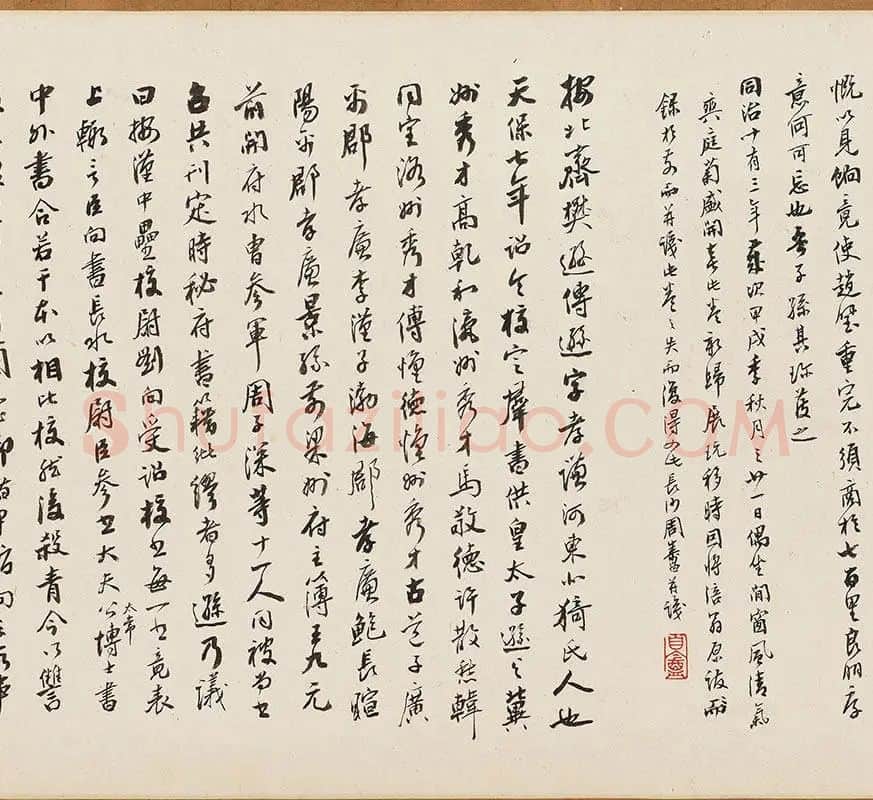 慨以見餉竟使趙璧重完不須商於七百里良朋厚
意何可忘也吾子孫其珍之
同治十有三年歲次甲戌季秋月之廿一日偶坐閒窗風清氣
爽庭菊盛開喜此卷新歸展玩移時因將涪翁原跋
錄於前而并識此卷之失而復得如此長沙周壽昌并識
按北齊樊遜傳遜字孝謙河東北猗氏人也
天保七年詔令校定羣書供皇太子遜與冀
州秀才高乾和瀛州秀才馬敬德許散愁韓
同宝洛州秀才傅懷德懷州秀才古道子廣
平郡孝廉李漢子渤海郡孝廉鮑長暄
陽平郡孝廉景孫前梁州府主簿王九元
前開府水曹參軍周子深等十一人同被尚書
召共刊定時秘府書籍紕繆者多遜乃議
曰按漢中壘校尉劉向受詔校書每一書竟表
上輒言臣向書長水校尉臣參書太常大夫公博士書
中外書合若干本以相比校然後殺青今以讎
Shufaziliao.COM